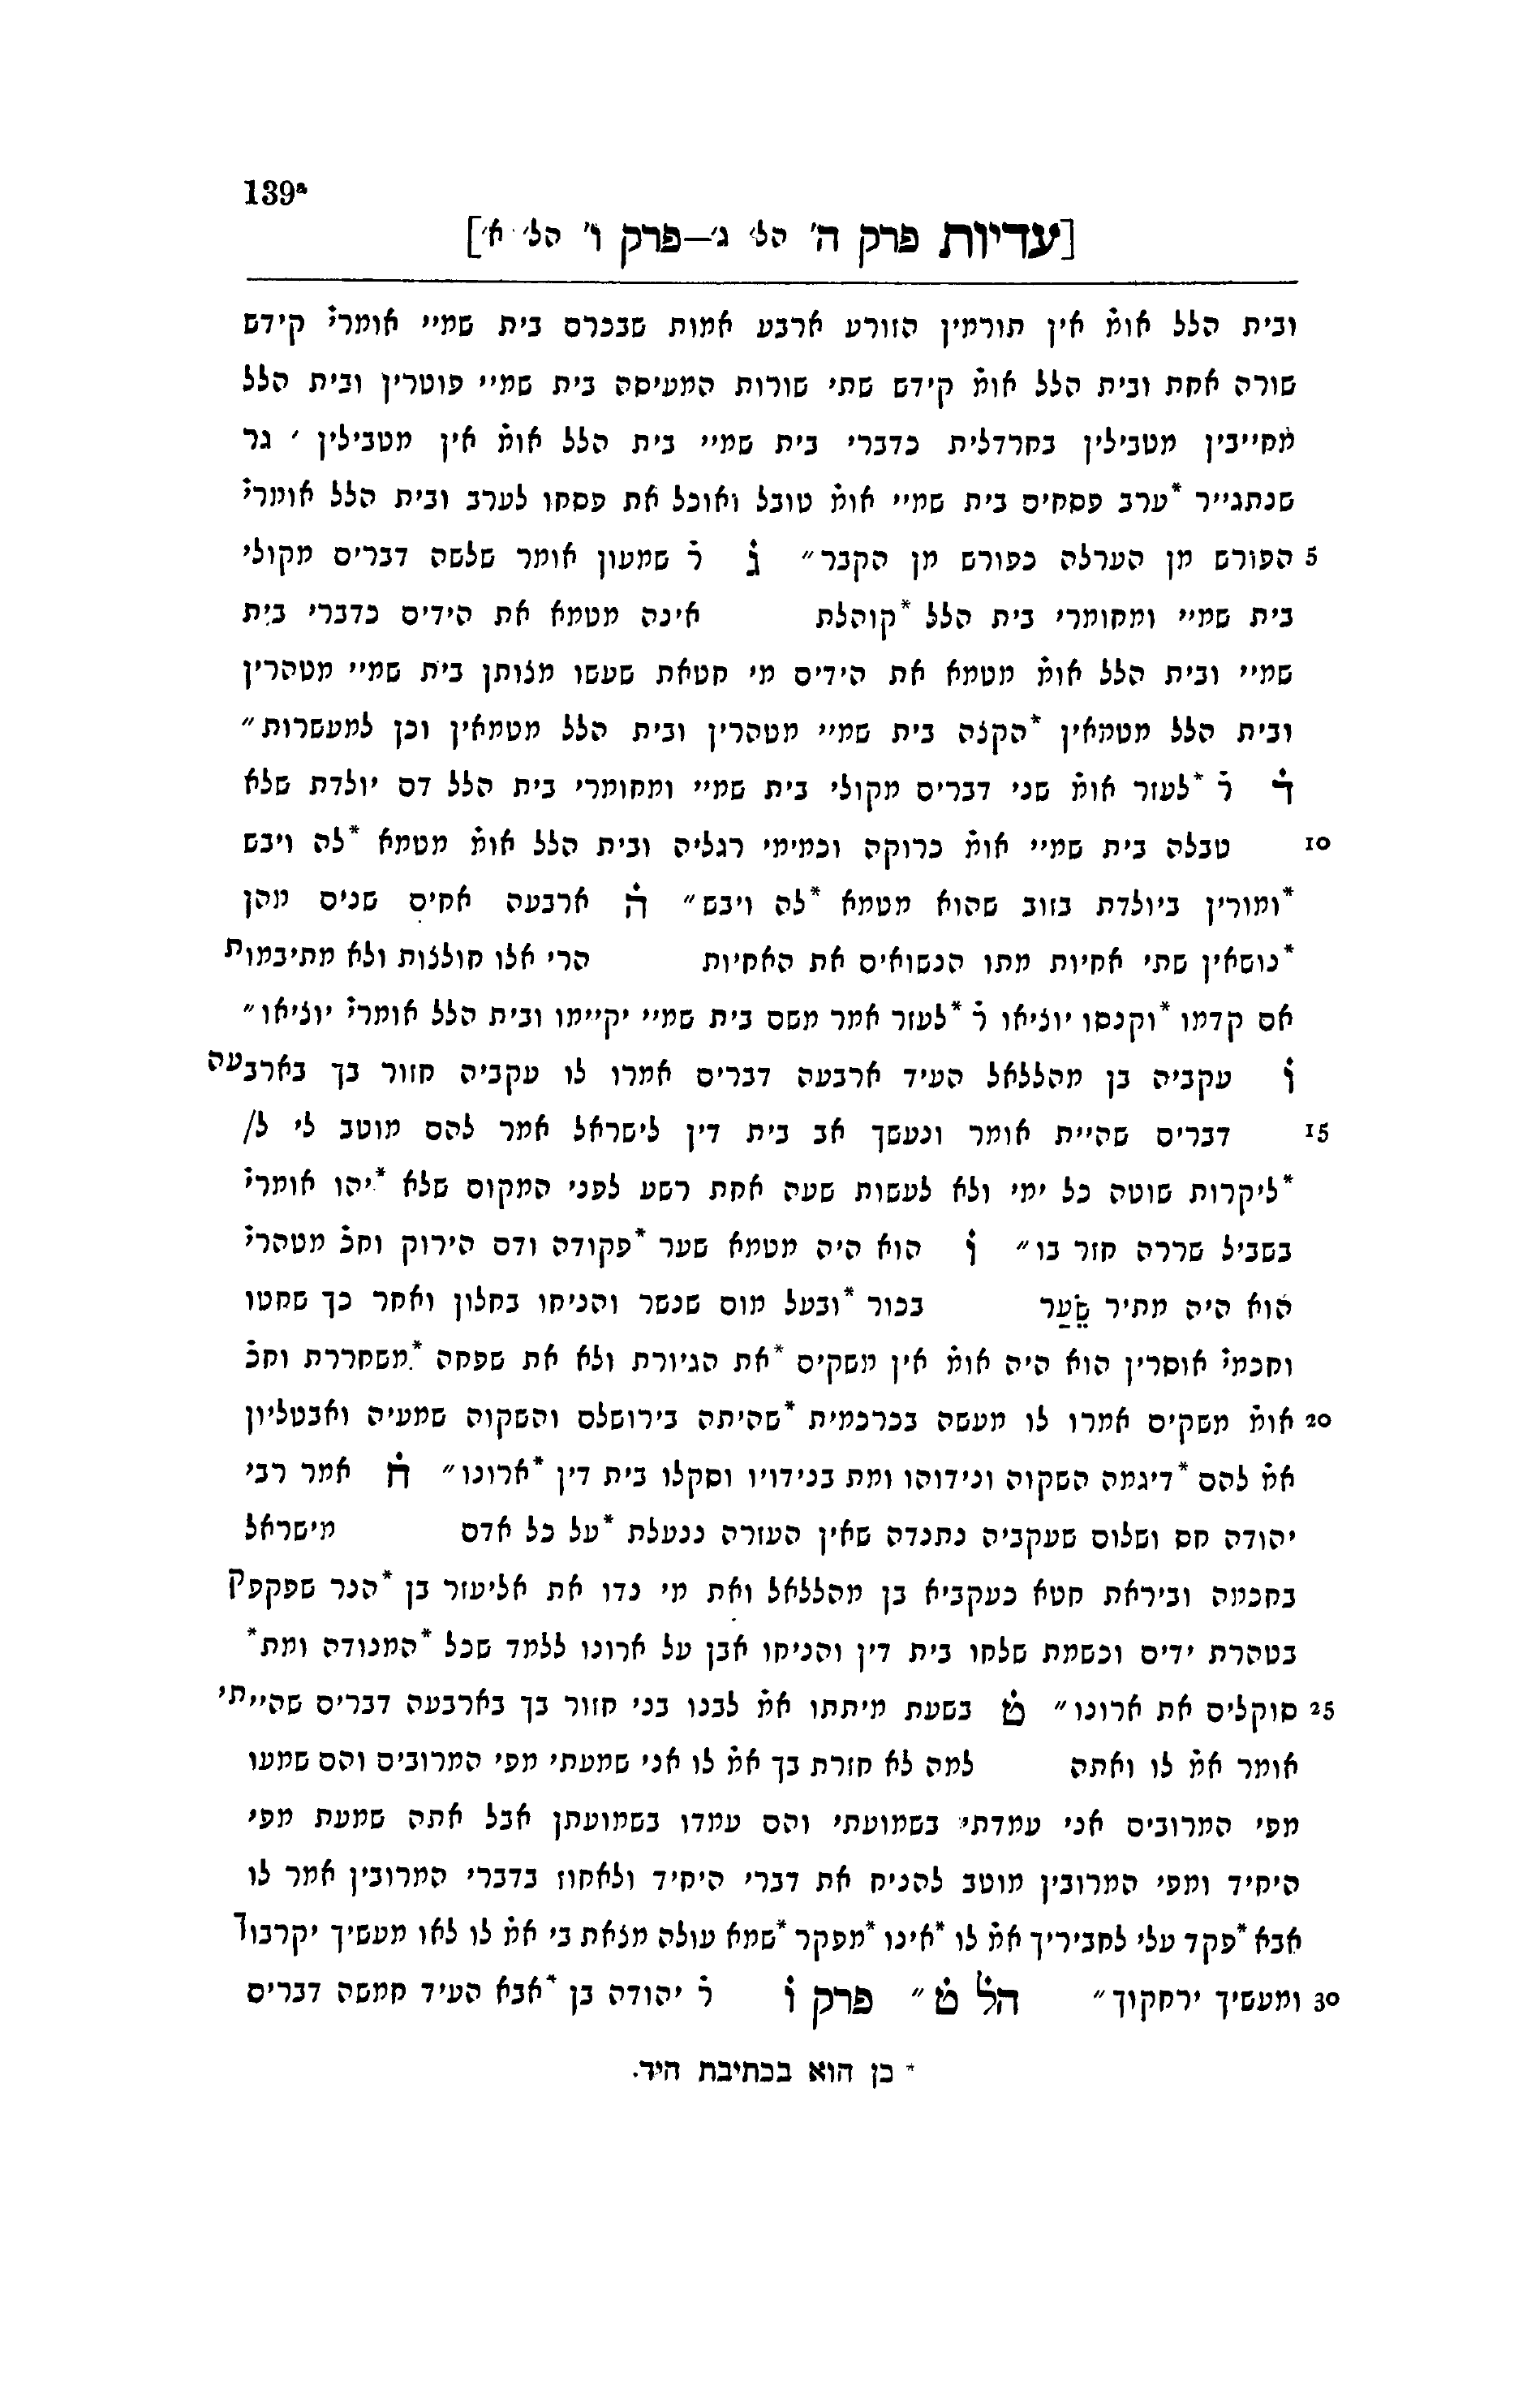 139ª
[עדיות פרק ה' הל' ג'—פרק ו' הל' א']
ובית הלל אומ̇ אין תורמין הזורע ארבע אמות שבכרם בית שמיי אומרי̇ קידש
שורה אחת ובית הלל אומ̇ קידש שתי שורות המעיסה בית שמיי פוטרין ובית הלל
מחייבין מטבילין בחרדלית כדברי בית שמיי בית הלל אומ̇ אין מטבילין ׳ גר
שנתגייר *ערב פסחים בית שמיי אומ̇ טובל ואוכל את פסחו לערב ובית הלל אומרי̇
5 הפורש מן הערלה כפורש מן הקבר״ ג̇ ר̇ שמעון אומר שלשה דברים מקולי
בית שמיי ומחומרי בית הלל *קוהלת אינה מטמא את הידים כדברי בית
שמיי ובית הלל אומ̇ מטמא את הידים מי חטאת שעשו מצותן בית שמיי מטהרין
ובית הלל מטמאין *הקצה בית שמיי מטהרין ובית הלל מטמאין וכן למעשרות״
ד̇ ר̇ *לעזר אומ̇ שני דברים מקולי בית שמיי ומחומרי בית הלל דם יולדת שלא
10 טבלה בית שמיי אומ̇ כרוקה וכמימי רגליה ובית הלל אומ̇ מטמא *לה ויבש
*ומורין ביולדת בזוב שהוא מטמא *לה ויבש״ ה̇ ארבעה אחים שנים מהן
*נושאין שתי אחיות מתו הנשואים את האחיות הרי אלו חולצות ולא מתיבמות
אם קדמו *וקנסו יוציאו ר̇ *לעזר אמר משם בית שמיי יקיימו ובית הלל אומרי̇ יוציאו״
ו̇ עקביה בן מהללאל העיד ארבעה דברים אמרו לו עקביה חזור בך בארבעה
15 דברים שהיית אומר ונעשך אב בית דין לישראל אמר להם מוטב לי ל/
*ליקרות שוטה כל ימי ולא לעשות שעה אחת רשע לפני המקום שלא *יהו אומרי̇
בשביל שררה חזר בו״ ז̇ הוא היה מטמא שער *פקודה ודם הירוק וחכ̇ מטהרי̇
הוא היה מתיר שֵׂעַר בכור *ובעל מום שנשר והניחו בחלון ואחר כך שחטו
וחכמי̇ אוסרין הוא היה אומ̇ אין משקים *את הגיורת ולא את שפחה *משחררת וחכ̇
20 אומ̇ משקים אמרו לו מעשה בכרכמית *שהיתה בירושלם והשקוה שמעיה ואבטליון
אמ̇ להם *דיגמה השקוה ונידוהו ומת בנידויו וסקלו בית דין *ארונו״ ח̇ אמר רבי
יהודה חס ושלום שעקביה נתנדה שאין העזרה ננעלת *על כל אדם מישראל
בחכמה וביראת חטא כעקביא בן מהללאל ואת מי נדו את אליעזר בן *הנר שפקפק
בטהרת ידים וכשמת שלחו בית דין והניחו אבן על ארונו ללמד שכל *המנודה ומת*
25 סוקלים את ארונו״ ט̇ בשעת מיתתו אמ̇ לבנו בני חזור בך בארבעה דברים שהייתי
אומר אמ̇ לו ואתה למה לא חזרת בך אמ̇ לו אני שמעתי מפי המרובים והם שמעו
מפי המרובים אני עמדתי בשמועתי והם עמדו בשמועתן אבל אתה שמעת מפי
היחיד ומפי המרובין מוטב להניח את דברי היחיד ולאחוז בדברי המרובין אמר לו
אבא *פקד עלי לחביריך אמ̇ לו *אינו *מפקר *שמא עולה מצאת בי אמ̇ לו לאו מעשיך יקרבוך
30 ומעשיך ירחקוך״ הל̇ ט̇ ״ פרק ו̇ ר̇ יהודה בן *אבא העיד חמשה דברים
* כן הוא בכתיבת היד.